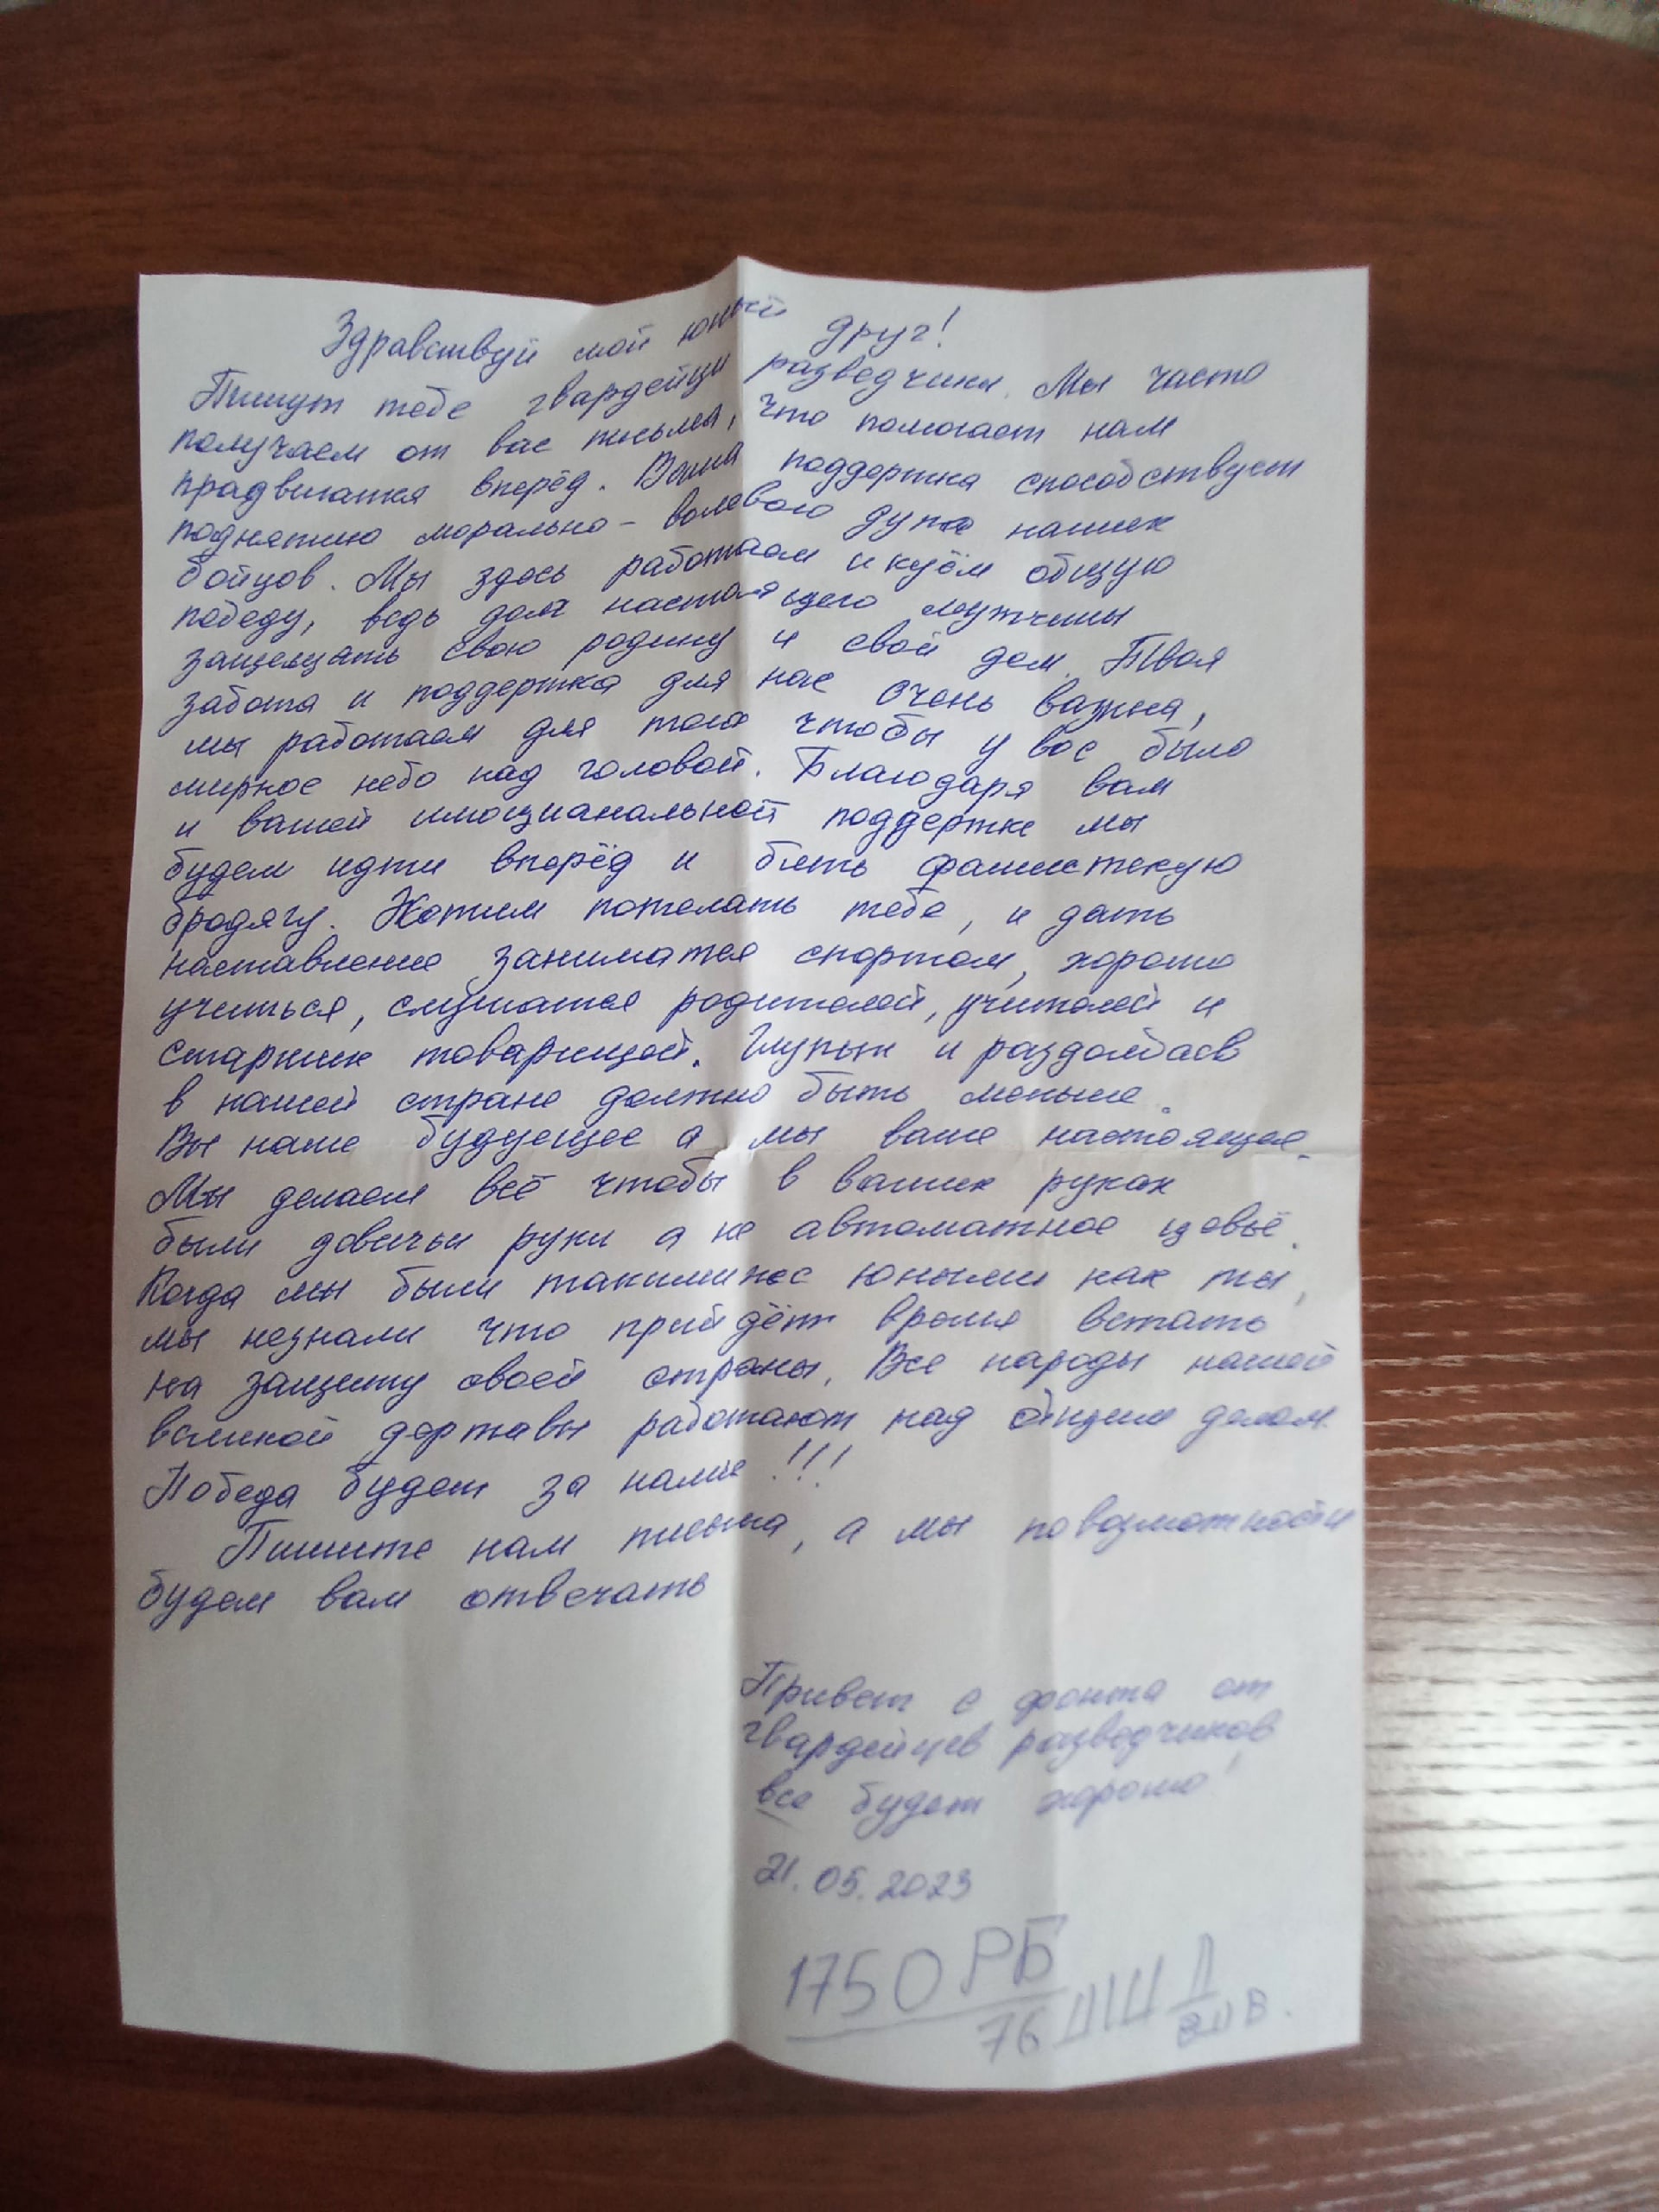 Здравствуй мой юный друг!
Пишут тебе гвардейци разведчики. Мы часто
получаем от вас письма, что помогает нам
прадвигатся вперёд. Ваша поддержка способствует
поднятию морально-волевого духа наших
бойцов. Мы здесь работаем и куём общую
победу, ведь долг настоящего мужчины
защищать свою родину и свой дом. Твоя
забота и поддержка для нас очень важна,
мы работаем для того чтобы у вас было
мирное небо над головой. Благодаря вам
и вашей имоцианальной поддержке мы
будем идти вперёд и бить фашисткую
бродягу. Хотим пожелать тебе, и дать
наставление заниматся спортом, хорошо
учиться, слушатся родителей, учителей и
старших товарищей. Глупых и раздолбаев
в нашей стране должно быть меньше.
Вы наше будующее а мы ваше настоящее.
Мы делаем всё чтобы в ваших руках
были девичьи руки а не автоматное цевьё.
Когда мы были такими же юными как ты,
мы незнали что прийдёт время встать
на защиту своей страны. Все народы нашей
великой державы работают над общим делом.
Победа будет за нами!!!
Пишите нам письма, а мы по возможности
будем вам отвечать
Привет с фронта от
гвардейцев разведчиков
все будет хорошо!
21.05.2023
1750 РБ
76